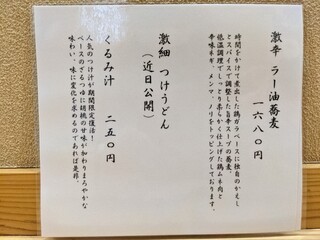 激辛 ラー油蕎麦
一六八〇円
時間をかけて煮出した鶏ガラベースに独自のかえし
とスパイスで調整した旨辛スープの蕎麦。
低温調理でしっとり柔らかく仕上げた鶏ムネ肉と
辛味ネギ、メンマ、ノリをトッピングしております。
激細 つけうどん
(近日公開)
くるみ汁 二五〇円
人気のつけ汁が期間限定復活！
ベースのざるつゆに胡桃の甘味が加わりまろやかな
味わい。味に変化を求めるのであれば是非。